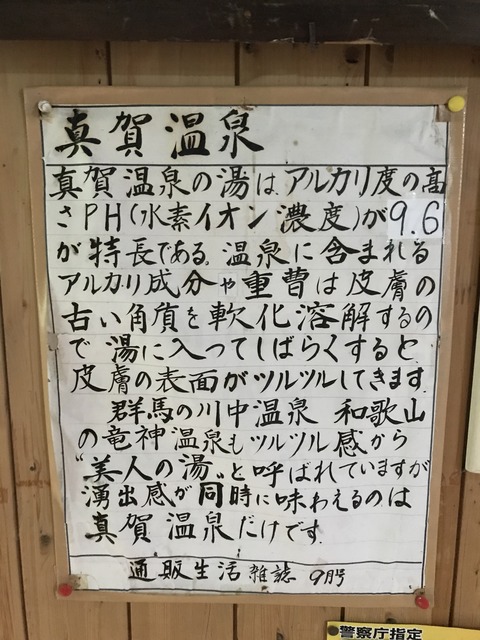 真賀温泉
真賀温泉の湯は、アルカリ度の高
さPH(水素イオン濃度)が9.6
が特長である。温泉に含まれる
アルカリ成分や重曹は皮膚の
古い角質を軟化溶解するの
で湯に入ってしばらくすると、
皮膚の表面がツルツルしてきます。
群馬の川中温泉 和歌山
の竜神温泉もツルツル感から
“美人の湯”と呼ばれていますが
湧出感が同時に味わえるのは
真賀温泉だけです。
通販生活 雑誌 9月号
警察庁指定